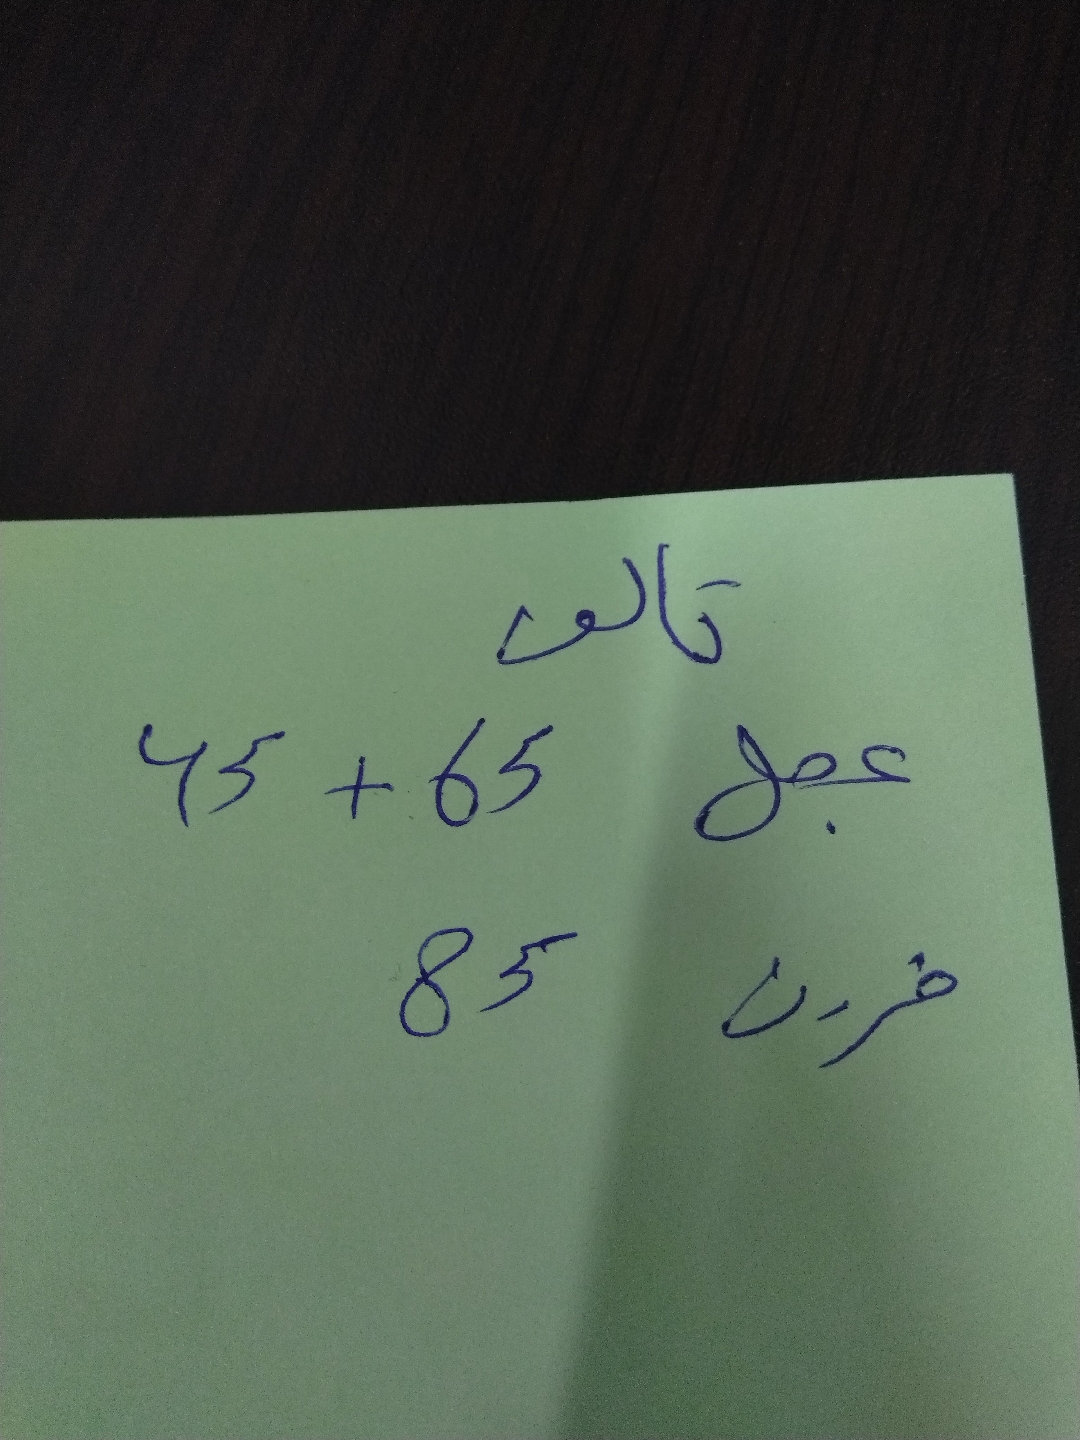 تالف
عجل 65 + 45
فرن 85